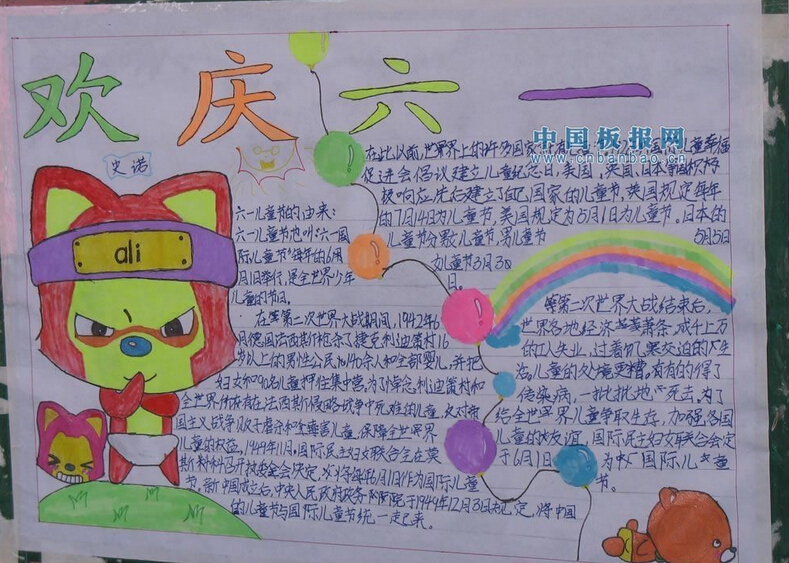 欢庆六一
史诺
中国板报网
www.cnbanbao.cn
ali
六一儿童节的由来:
六一儿童节也叫"六一国
际儿童节"每年的6月
1日举行,是全世界少年
儿童的节日。
在第二次世界大战期间,1942年6
月德国法西斯枪杀了捷克利迪策村16
岁以上的男性公民140余人和全部婴儿,并把
妇女和90名儿童押往集中营,为了悼念利迪策村和
全世界所有在法西斯侵略战争中死难的儿童,反对帝
国主义战争贩子虐杀和毒害儿童,保障全世界
儿童的权益,1949年11月,国际民主妇女联合会在莫
斯科召开执委会决定,以将每年6月1日作为国际儿童
节,新中国成立后,中央人民政府政务院于1949年12月3日规定,将中国
的儿童节与国际儿童节统一起来。
在此以前,世界上的许多国家 儿童幸福
促进会倡议建立儿童纪念日,美国,英国、日本等国积极
极响应,先后建立了自己国家的儿童节,英国规定每年
的7月14日为儿童节,美国规定为5月1日为儿童节。日本的
儿童节分男女儿童节,男儿童节 5月5日
女儿童节3月3日
日。
第二次世界大战结束后,
世界各地经济萧条,成千上万
的工人失业,过着饥寒交迫的生
活。儿童的处境更糟,有的得了
传染病,一批批地死去。为了
给全世界儿童争取生存,加强各国
儿童的友谊,国际民主妇女联合会定
于6月1日 为国际儿童
节。